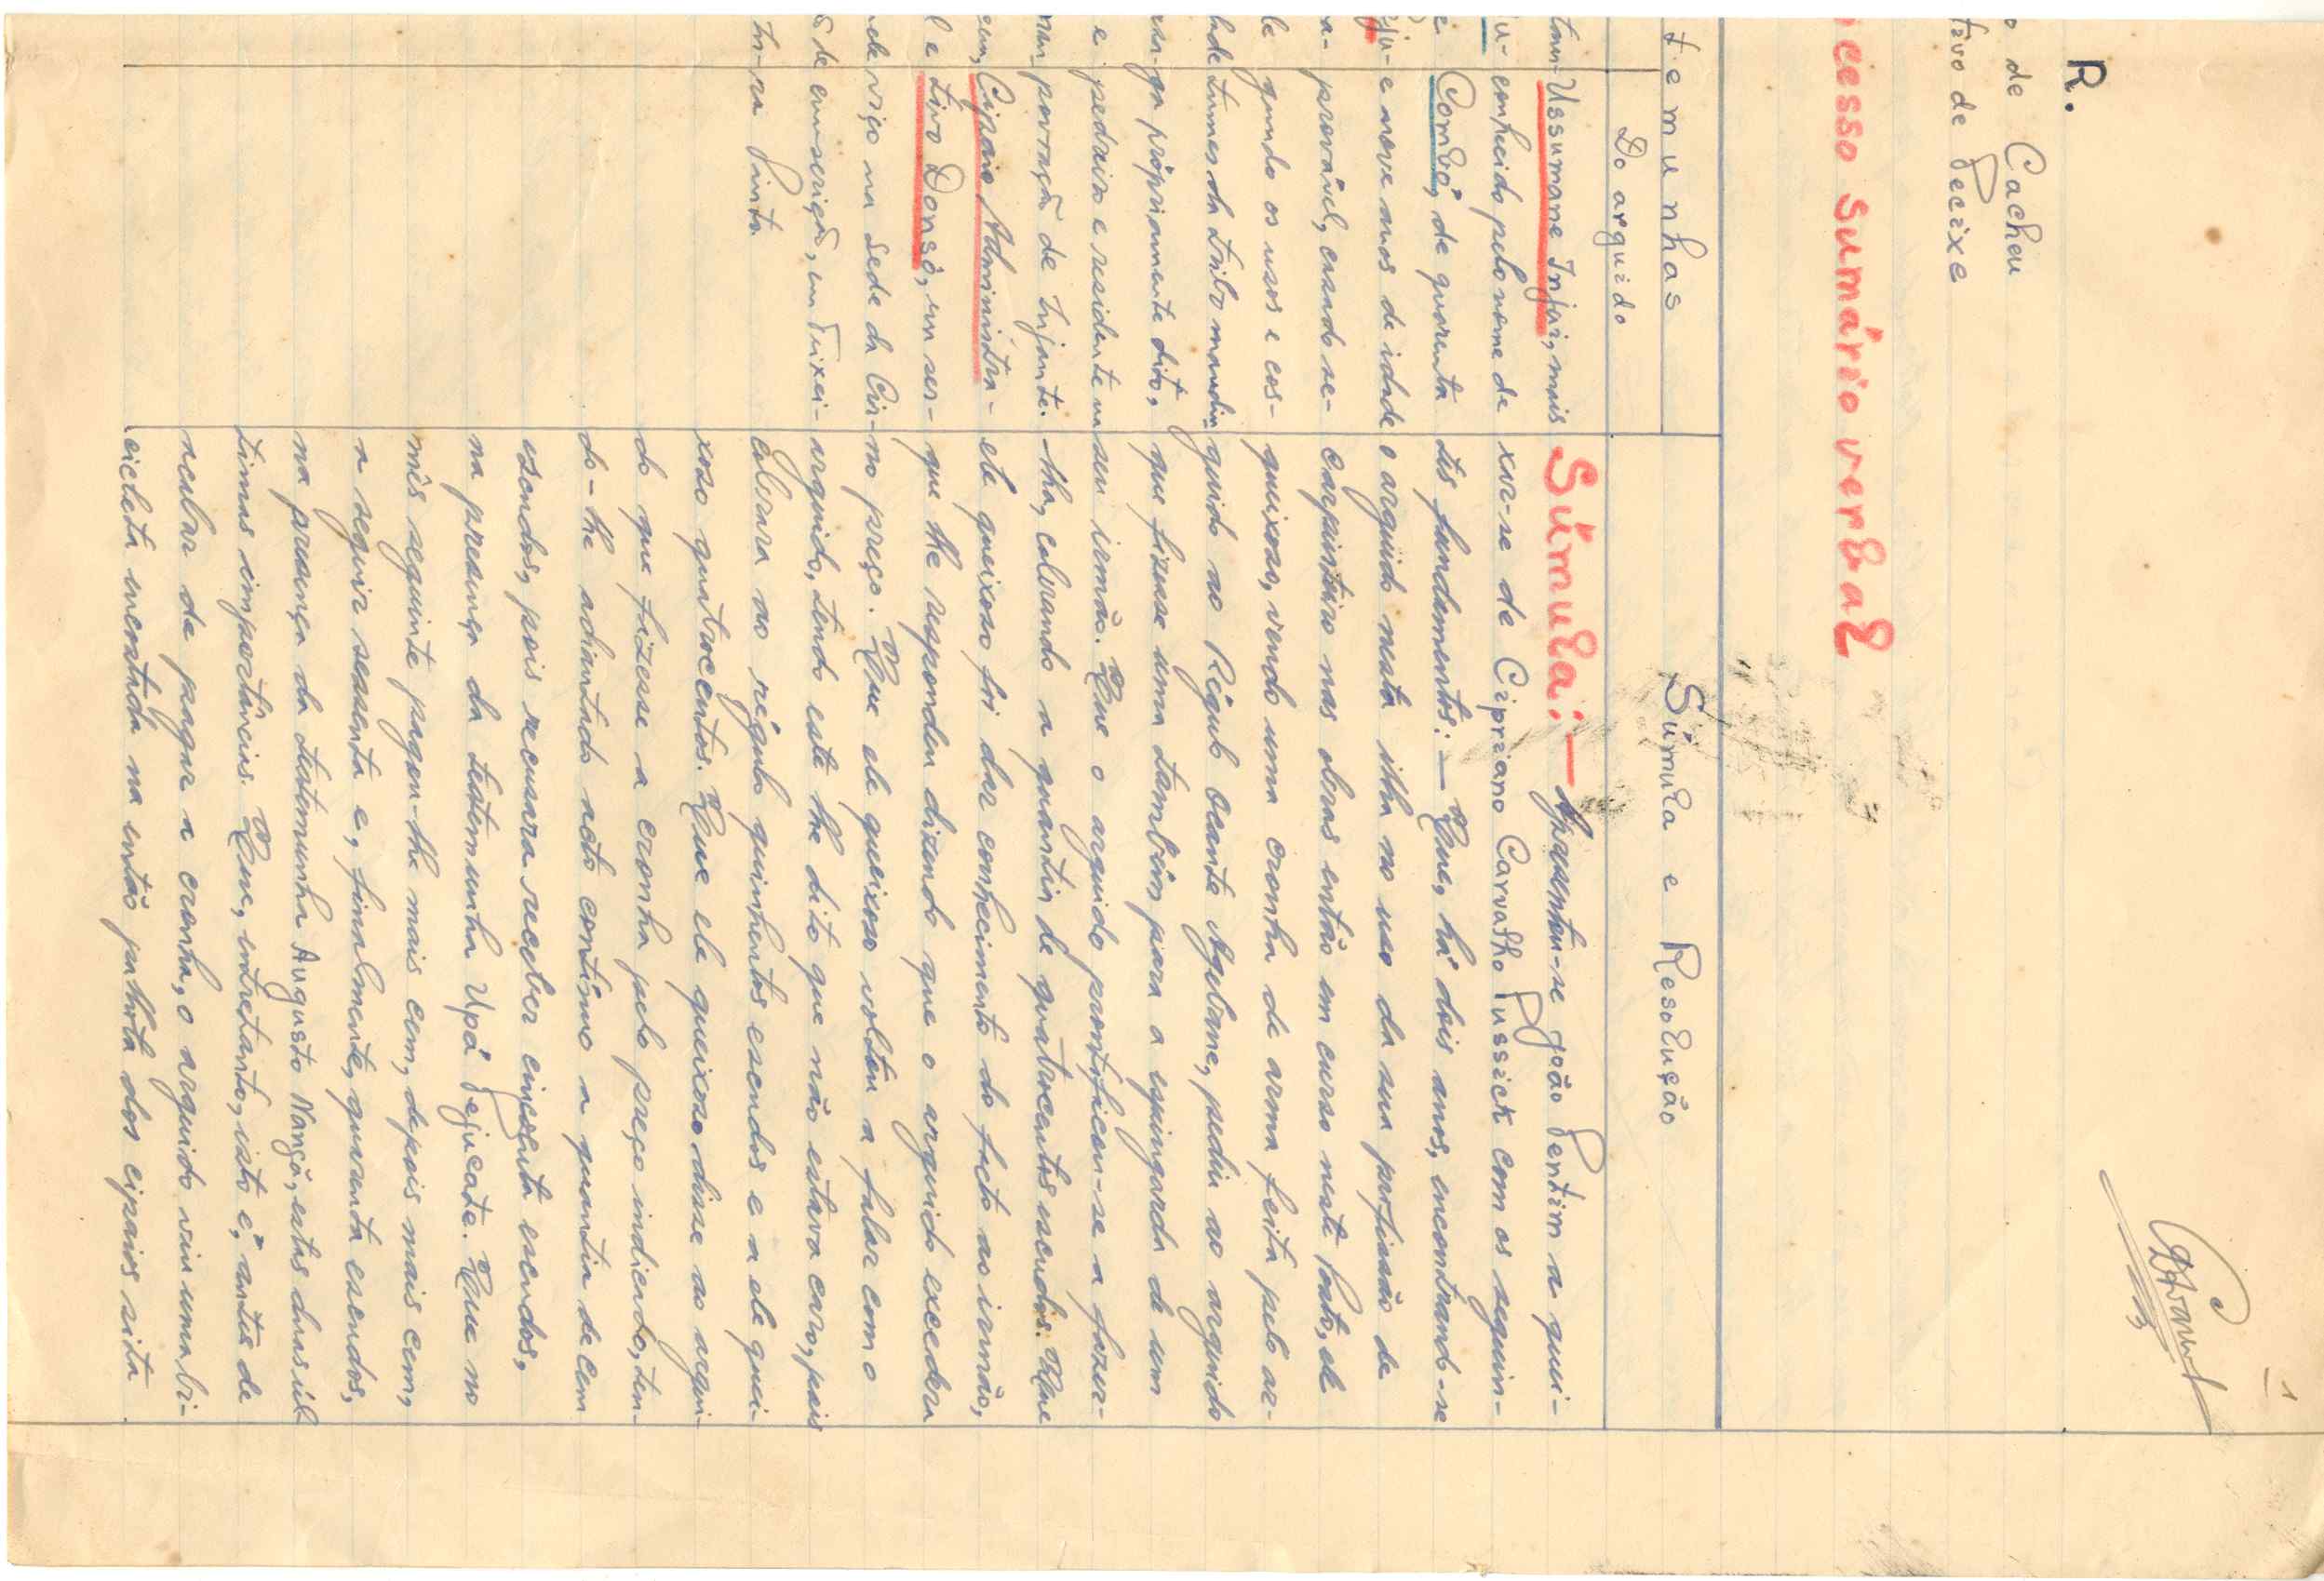 1
R.
o de Cacheu
tivo de Pecixe
cesso Sumário verbal
temunhas
Súmula e Resolução
Do arguido
Ussumane Injai, mais
conhecido pelo nome de
Combó, de quarenta
e nove anos de idade
provável, casado se-
gundo os usos e cos-
tumes da tribo mandin-
ga própriamente dito,
pedreiro e residente na
povoação de Injante.
Cipaio Administra-
tivo Donsó, em ser-
viço na Sede da Cir-
cunscrição, em Teixei-
ra Pinto
Súmula:— Apresentou-se João Pentim a quei-
xar-se de Cipriano Carvalho Pussick com os seguin-
tes fundamentos: — Que, há dois anos, encontrando-se
o arguido nesta ilha no uso da sua profissão de
carpinteiro nas obras então em curso neste Posto, ele
queixoso, vendo uma cronha de arma feita pelo ar-
guido ao Régulo Ocante Agebane, pediu ao arguido
que fizesse uma também para a espingarda de um
seu irmão. Que o arguido prontificou-se a fazer-
-lha, cobrando a quantia de quatrocentos escudos. Que
ele queixoso foi dar conhecimento do facto ao irmão,
que lhe respondeu dizendo que o arguido excedera
no preço. Que ele queixoso voltou a falar com o
arguido, tendo este lhe dito que não estava caro, pois
cobrara ao régulo quinhentos escudos e a ele quei-
xoso quatrocentos. Que ele queixoso disse ao argui-
do que fizesse a cronha pelo preço indicado, ten-
do-lhe adiantado acto contínuo a quantia de cem
escudos, pois recusara receber cinquenta escudos,
na presença da testemunha Upá Pejucate. Que no
mês seguinte pagou-lhe mais cem, depois mais cem,
a seguir sessenta e, finalmente, quarenta escudos,
na presença da testemunha Augusto Nangó, estas duas úl-
timas importâncias. Que, entretanto, isto é, antes de
acabar de pagar a cronha, o arguido viu uma bi-
cicleta encostada na então palhota dos cipaios sita